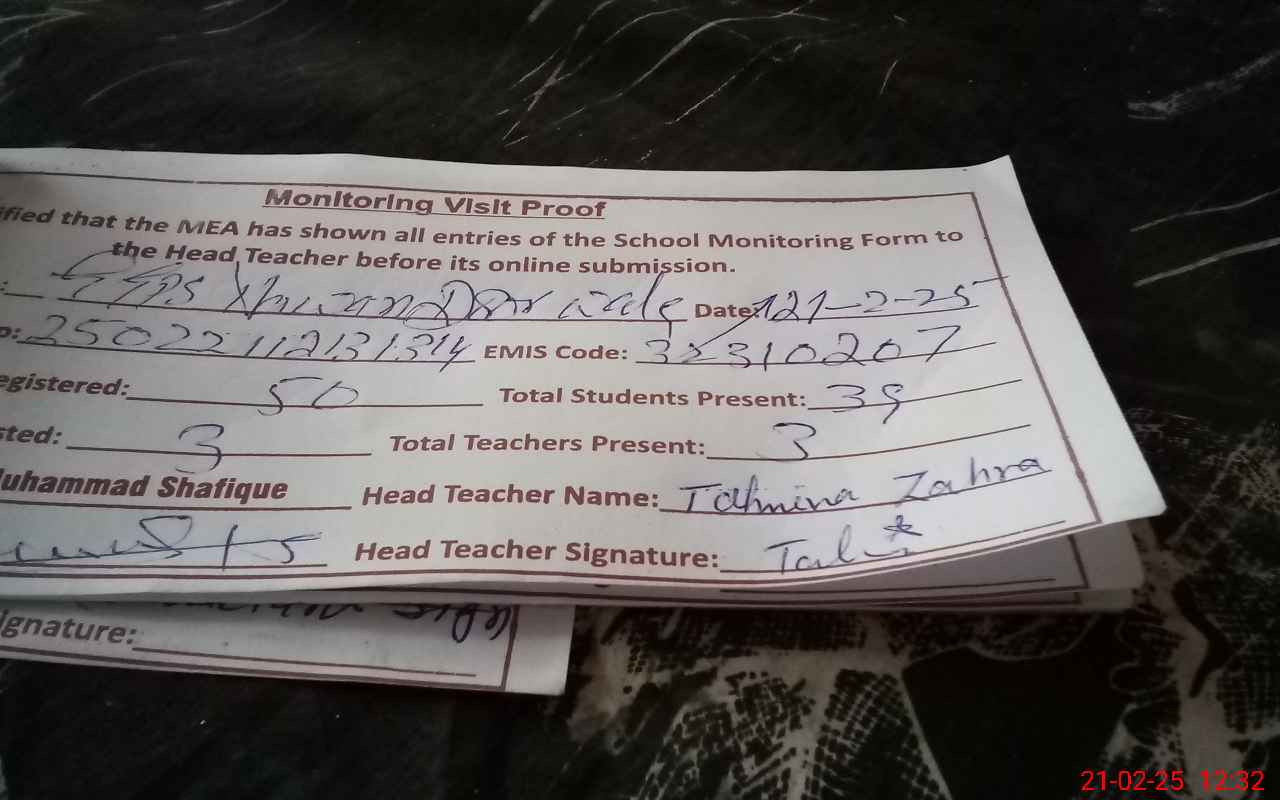 Monitoring Visit Proof
ified that the MEA has shown all entries of the School Monitoring Form to
the Head Teacher before its online submission.
: GGPS Date: 21-2-25
o: EMIS Code: 32310207
egistered: 50 Total Students Present: 39
sted: 3 Total Teachers Present: 3
uhammad Shafique Head Teacher Name: Tahmina Zahra
Head Teacher Signature:
ignature:
21-02-25 12:32